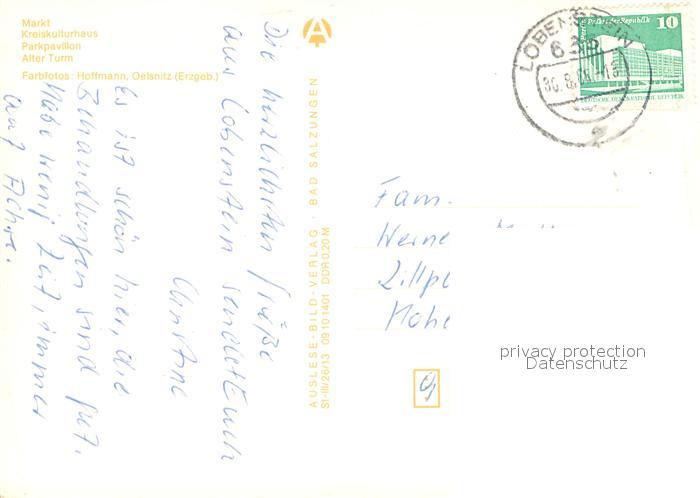 Markt
Kreiskulturhaus
Parkpavillon
Alter Turm
Farbfotos: Hoffmann, Oelsnitz (Erzgeb.)
Die herzlichsten Grüße
aus Lobenstein sendet Euch
Christine
Es ist schön hier, die
Behandlungen sind gut.
Habe wenig Zeit, immer
auf Achse.
AUSLESE-BILD-VERLAG · BAD SALZUNGEN
S1-III/26/13 09 10 1401 DDR 0,20 M
LOBENSTEIN
Palast der Republik
10
DEUTSCHE DEMOKRATISCHE REPUBLIK
Fam.
Werne
Hohe
privacy protection
Datenschutz